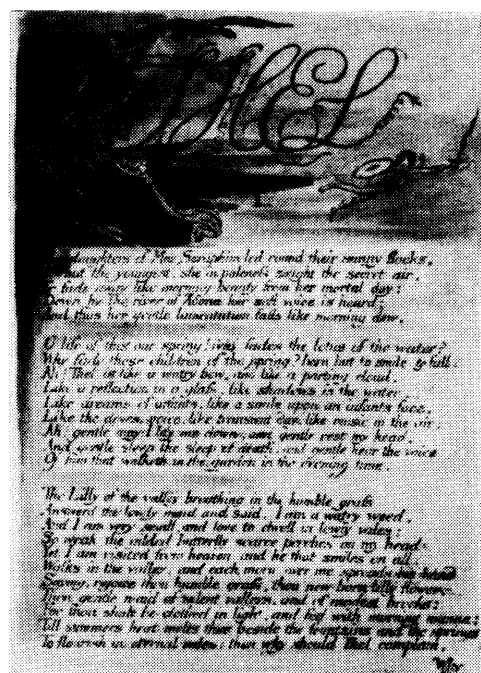 THEL
daughters of Mne Seraphim led round their sunny flocks,
but the youngest, she in paleness sought the secret air.
To fade away like morning beauty from her mortal day:
Down by the river of Adona her soft voice is heard:
And thus her gentle lamentation falls like morning dew.
O life of this our spring! why fades the lotus of the water?
Why fade these children of the spring? born but to smile & fall.
Ah! Thel is like a watry bow, and like a parting cloud.
Like a reflection in a glass, like shadows in the water.
Like dreams of infants, like a smile upon an infants face,
Like the doves voice, like transient day, like music in the air:
Ah! gentle may I lay me down, and gentle rest my head.
And gentle sleep the sleep of death, and gentle hear the voice
Of him that walketh in the garden in the evening time.
The Lilly of the valley breathing in the humble grass
Answerd the lovely maid and said; I am a watry weed,
And I am very small, and love to dwell in lowly vales;
So weak the gilded butterfly scarce perches on my head.
Yet I am visited from heaven and he that smiles on all.
Walks in the valley, and each morn over me spreads his hand
Saying, rejoice thou humble grass, thou new-born lilly flower,
Thou gentle maid of silent valleys, and of modest brooks:
For thou shalt be clothed in light, and fed with morning manna:
Till summers heat melts thee beside the fountains and the springs
To flourish in eternal vales: then why should Thel complain,
Why